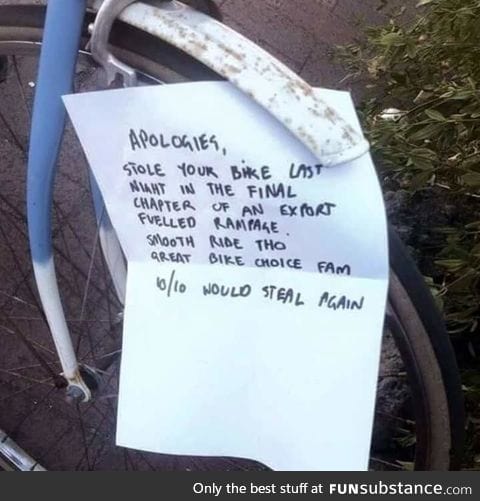 APOLOGIES,
STOLE YOUR BIKE LAST
NIGHT IN THE FINAL
CHAPTER OF AN EXPORT
FUELLED RAMPAGE.
SMOOTH RIDE THO
GREAT BIKE CHOICE FAM
10/10 WOULD STEAL AGAIN
Only the best stuff at FUNsubstance.com